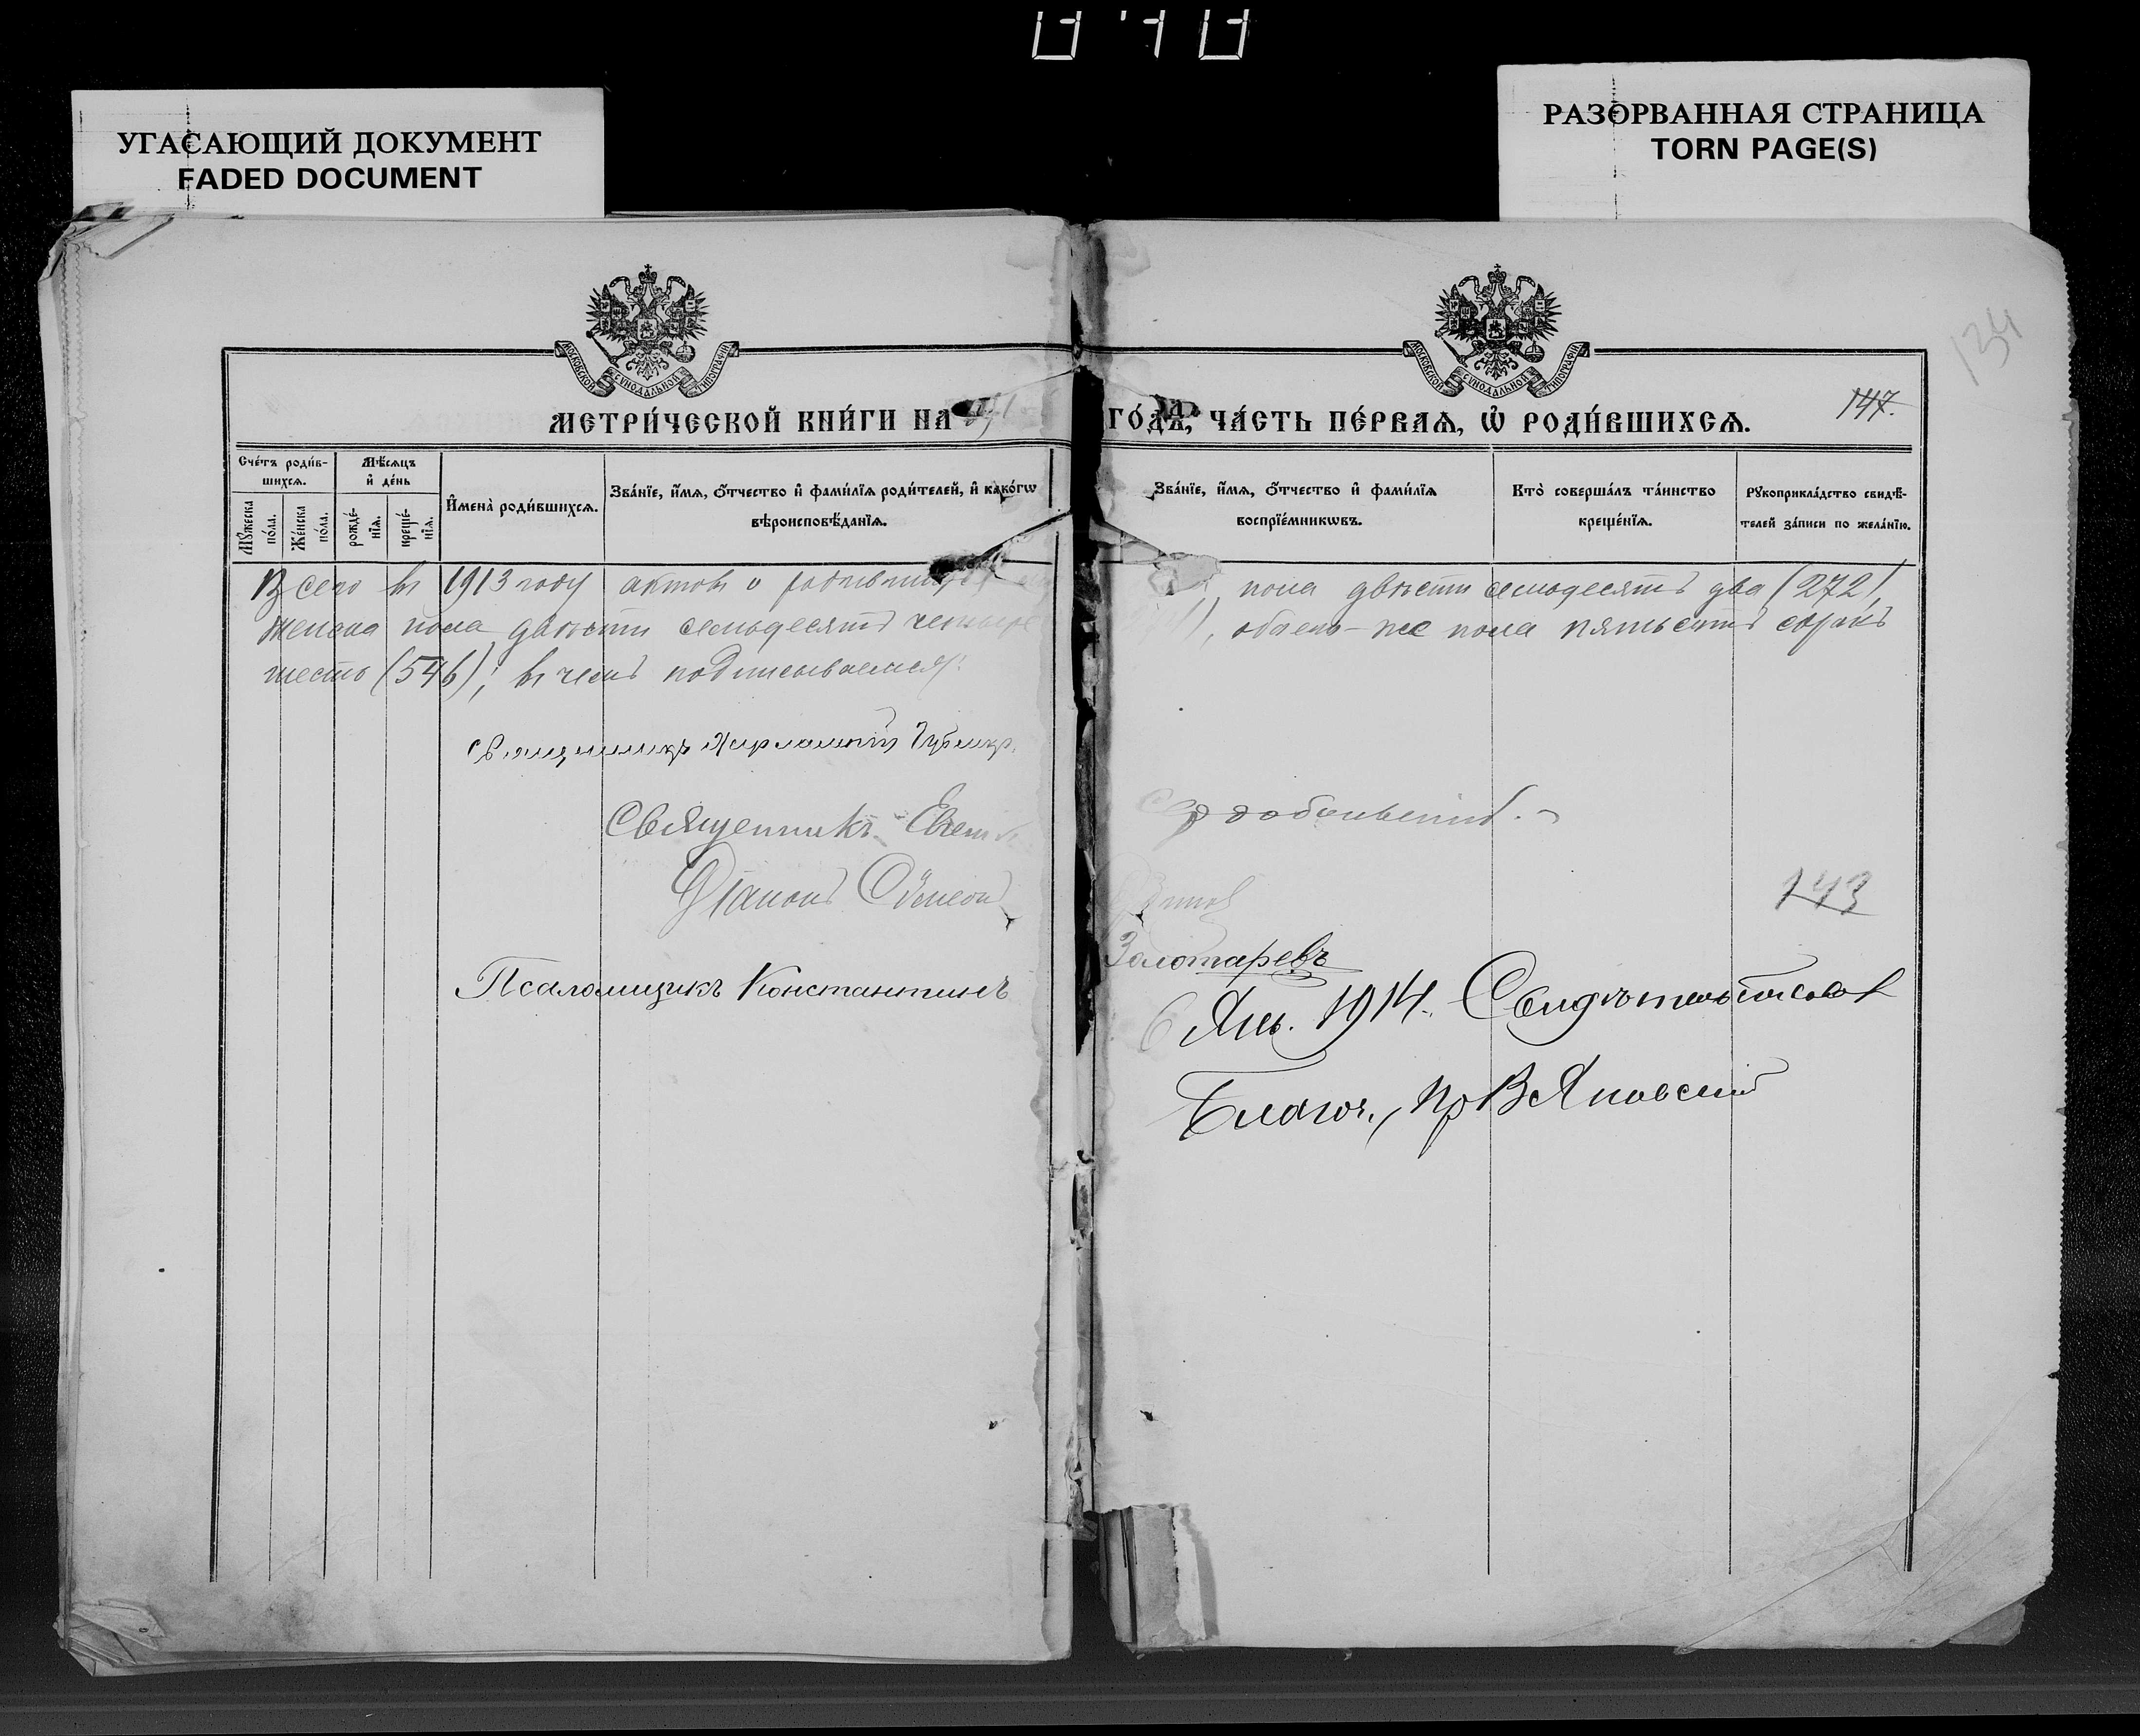 УГАСАЮЩИЙ ДОКУМЕНТ
FADED DOCUMENT
РАЗОРВАННАЯ СТРАНИЦА
TORN PAGE(S)
134
МОСКОВСКОЙ СѴНОДАЛЬНОЙ ТИПОГРАФІИ
МОСКОВСКОЙ СѴНОДАЛЬНОЙ ТИПОГРАФІИ
МЕТРИ́ЧЕСКОЙ КНИ́ГИ НА ГО́ДЪ, ЧА́СТЬ ПЕ́РВАѦ, Ѡ҆ РОДИ́ВШИХСѦ.
147.
Сче́тъ роди́вшихсѧ.
Мꙋ́жеска по́ла.
Же́нска по́ла.
Мѣ́сѧцъ и҆ де́нь
рожде́нїѧ.
креще́нїѧ.
И҆мена̀ роди́вшихсѧ.
Зва́нїе, и҆́мѧ, ѻ҆́тчество и҆ фами́лїѧ роди́телей, и҆ како́гѡ
вѣроисповѣ́данїѧ.
Зва́нїе, и҆́мѧ, ѻ҆́тчество и҆ фами́лїѧ
воспрїе́мникѡвъ.
Кто̀ соверша́лъ та́инство
креще́нїѧ.
Рꙋкоприкла́дство свидѣ́-
телей за́писи по жела́нїю.
Всего въ 1913 году актовъ о родившихся пола двѣсти семьдесятъ два (272),
женска пола двѣсти семьдесятъ четыре обаего-же пола пятьсотъ сорокъ
шесть (546); въ чемъ подписываемся:
Священникъ Харлампій
Священникъ
Діаконъ Сѵмеонъ
143
Псаломщикъ Константинъ Золотаревъ
6 Янв. 1914. Свидѣтельствовалъ
Благоч., пр. В Яновскій